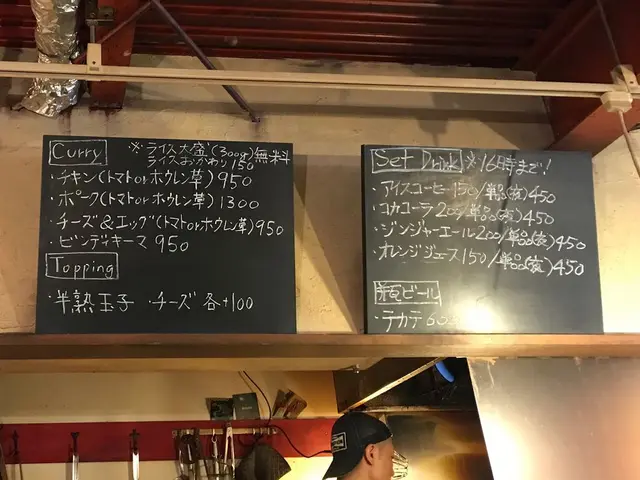 Curry ※ライス大盛(300g)無料
ライスおかわり150
・チキン(トマトorホウレン草)950
・ポーク(トマトorホウレン草)1300
・チーズ&エッグ(トマトorホウレン草)950
・ビンディキーマ 950
Topping
・半熟玉子 ・チーズ 各+100
Set Drink ※16時まで!
・アイスコーヒー150/単品(夜)450
・コカコーラ200/単品(夜)450
・ジンジャーエール200/単品(夜)450
・オレンジジュース150/単品(夜)450
瓶ビール
・テカテ